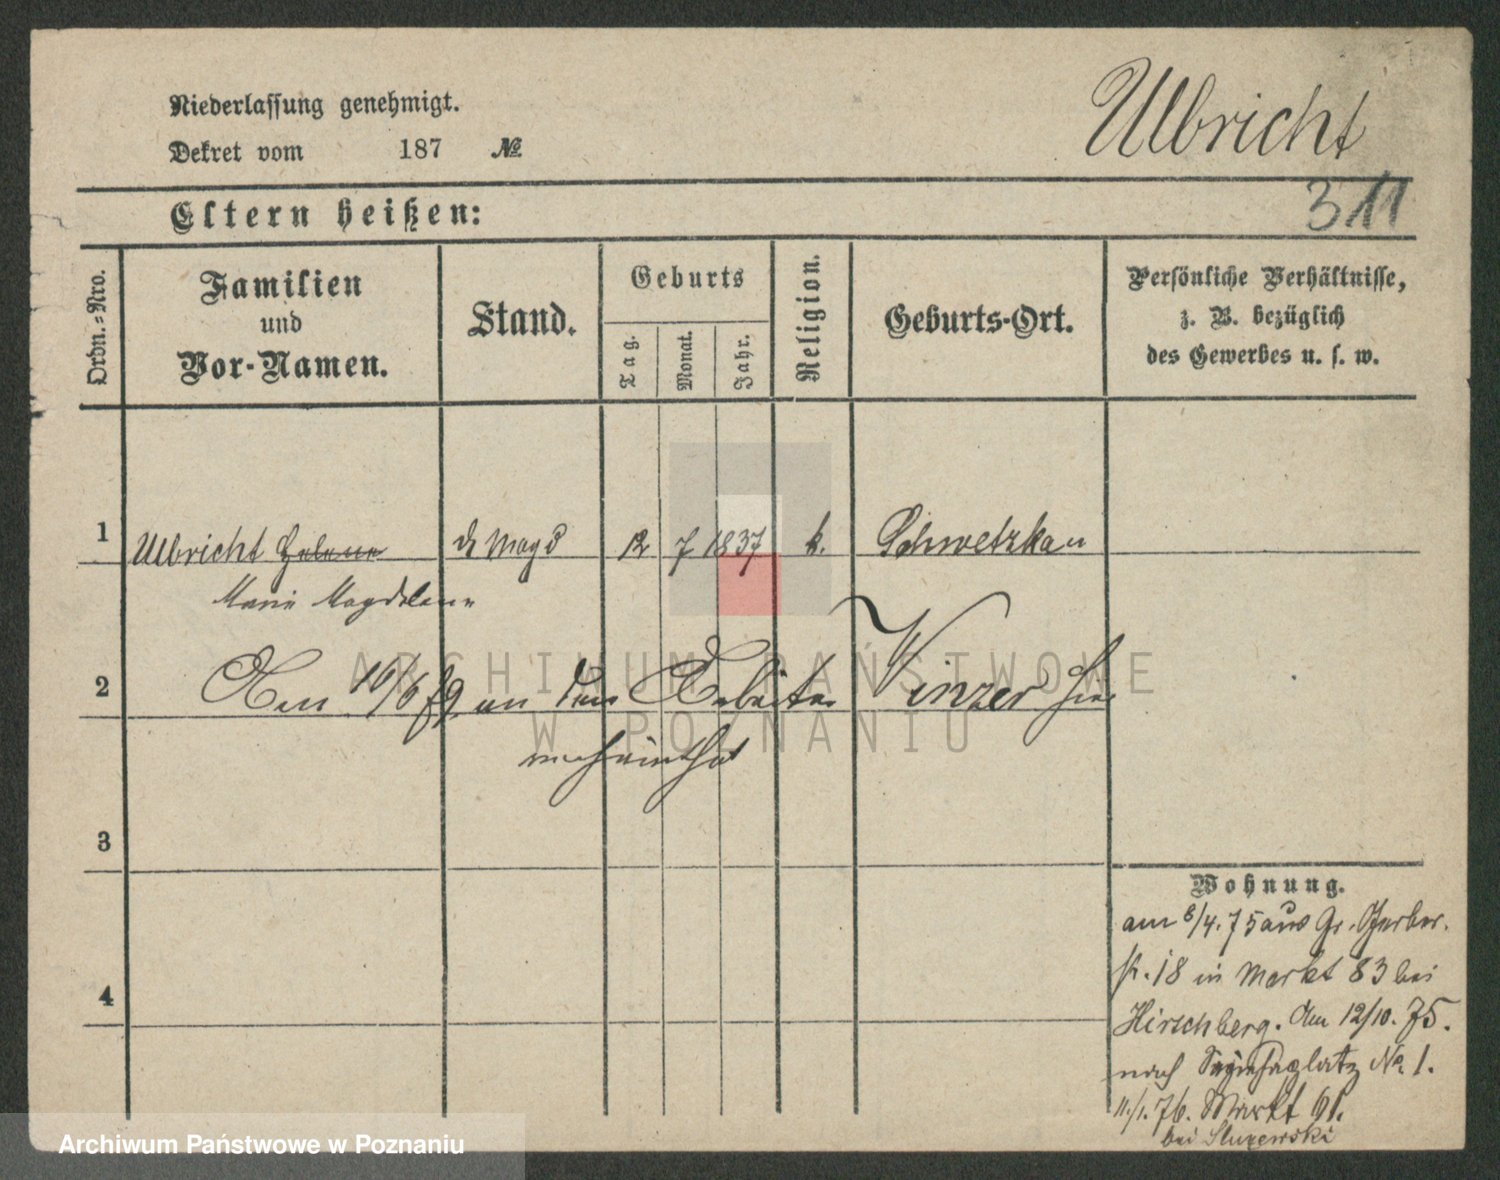 Niederlassung genehmigt.
Dekret vom 187 №
Ulbricht
311
Eltern heißen:
Ordn.-Nro.
Familien
und
Vor-Namen.
Stand.
Geburts
Tag.
Monat.
Jahr.
Religion.
Geburts-Ort.
Persönliche Verhältnisse,
z. B. bezüglich
des Gewerbes u. s. w.
1 Ulbricht Helene d Magd 12 7 1837 k. Schwetzkau
Marie Magdalena
2 Am 16/6 79 an den Arbeiter Vinzer hier
verheirathet
3
4
Wohnung.
am 8/4. 75 aus Gr. Gerber-
str. 18 in Markt 83 bei
Hirschberg. Am 12/10. 75.
nach Sapiehaplatz No 1.
11./1. 76. Markt 61.
bei Sluzewski
ARCHIWUM PAŃSTWOWE
W POZNANIU
Archiwum Państwowe w Poznaniu